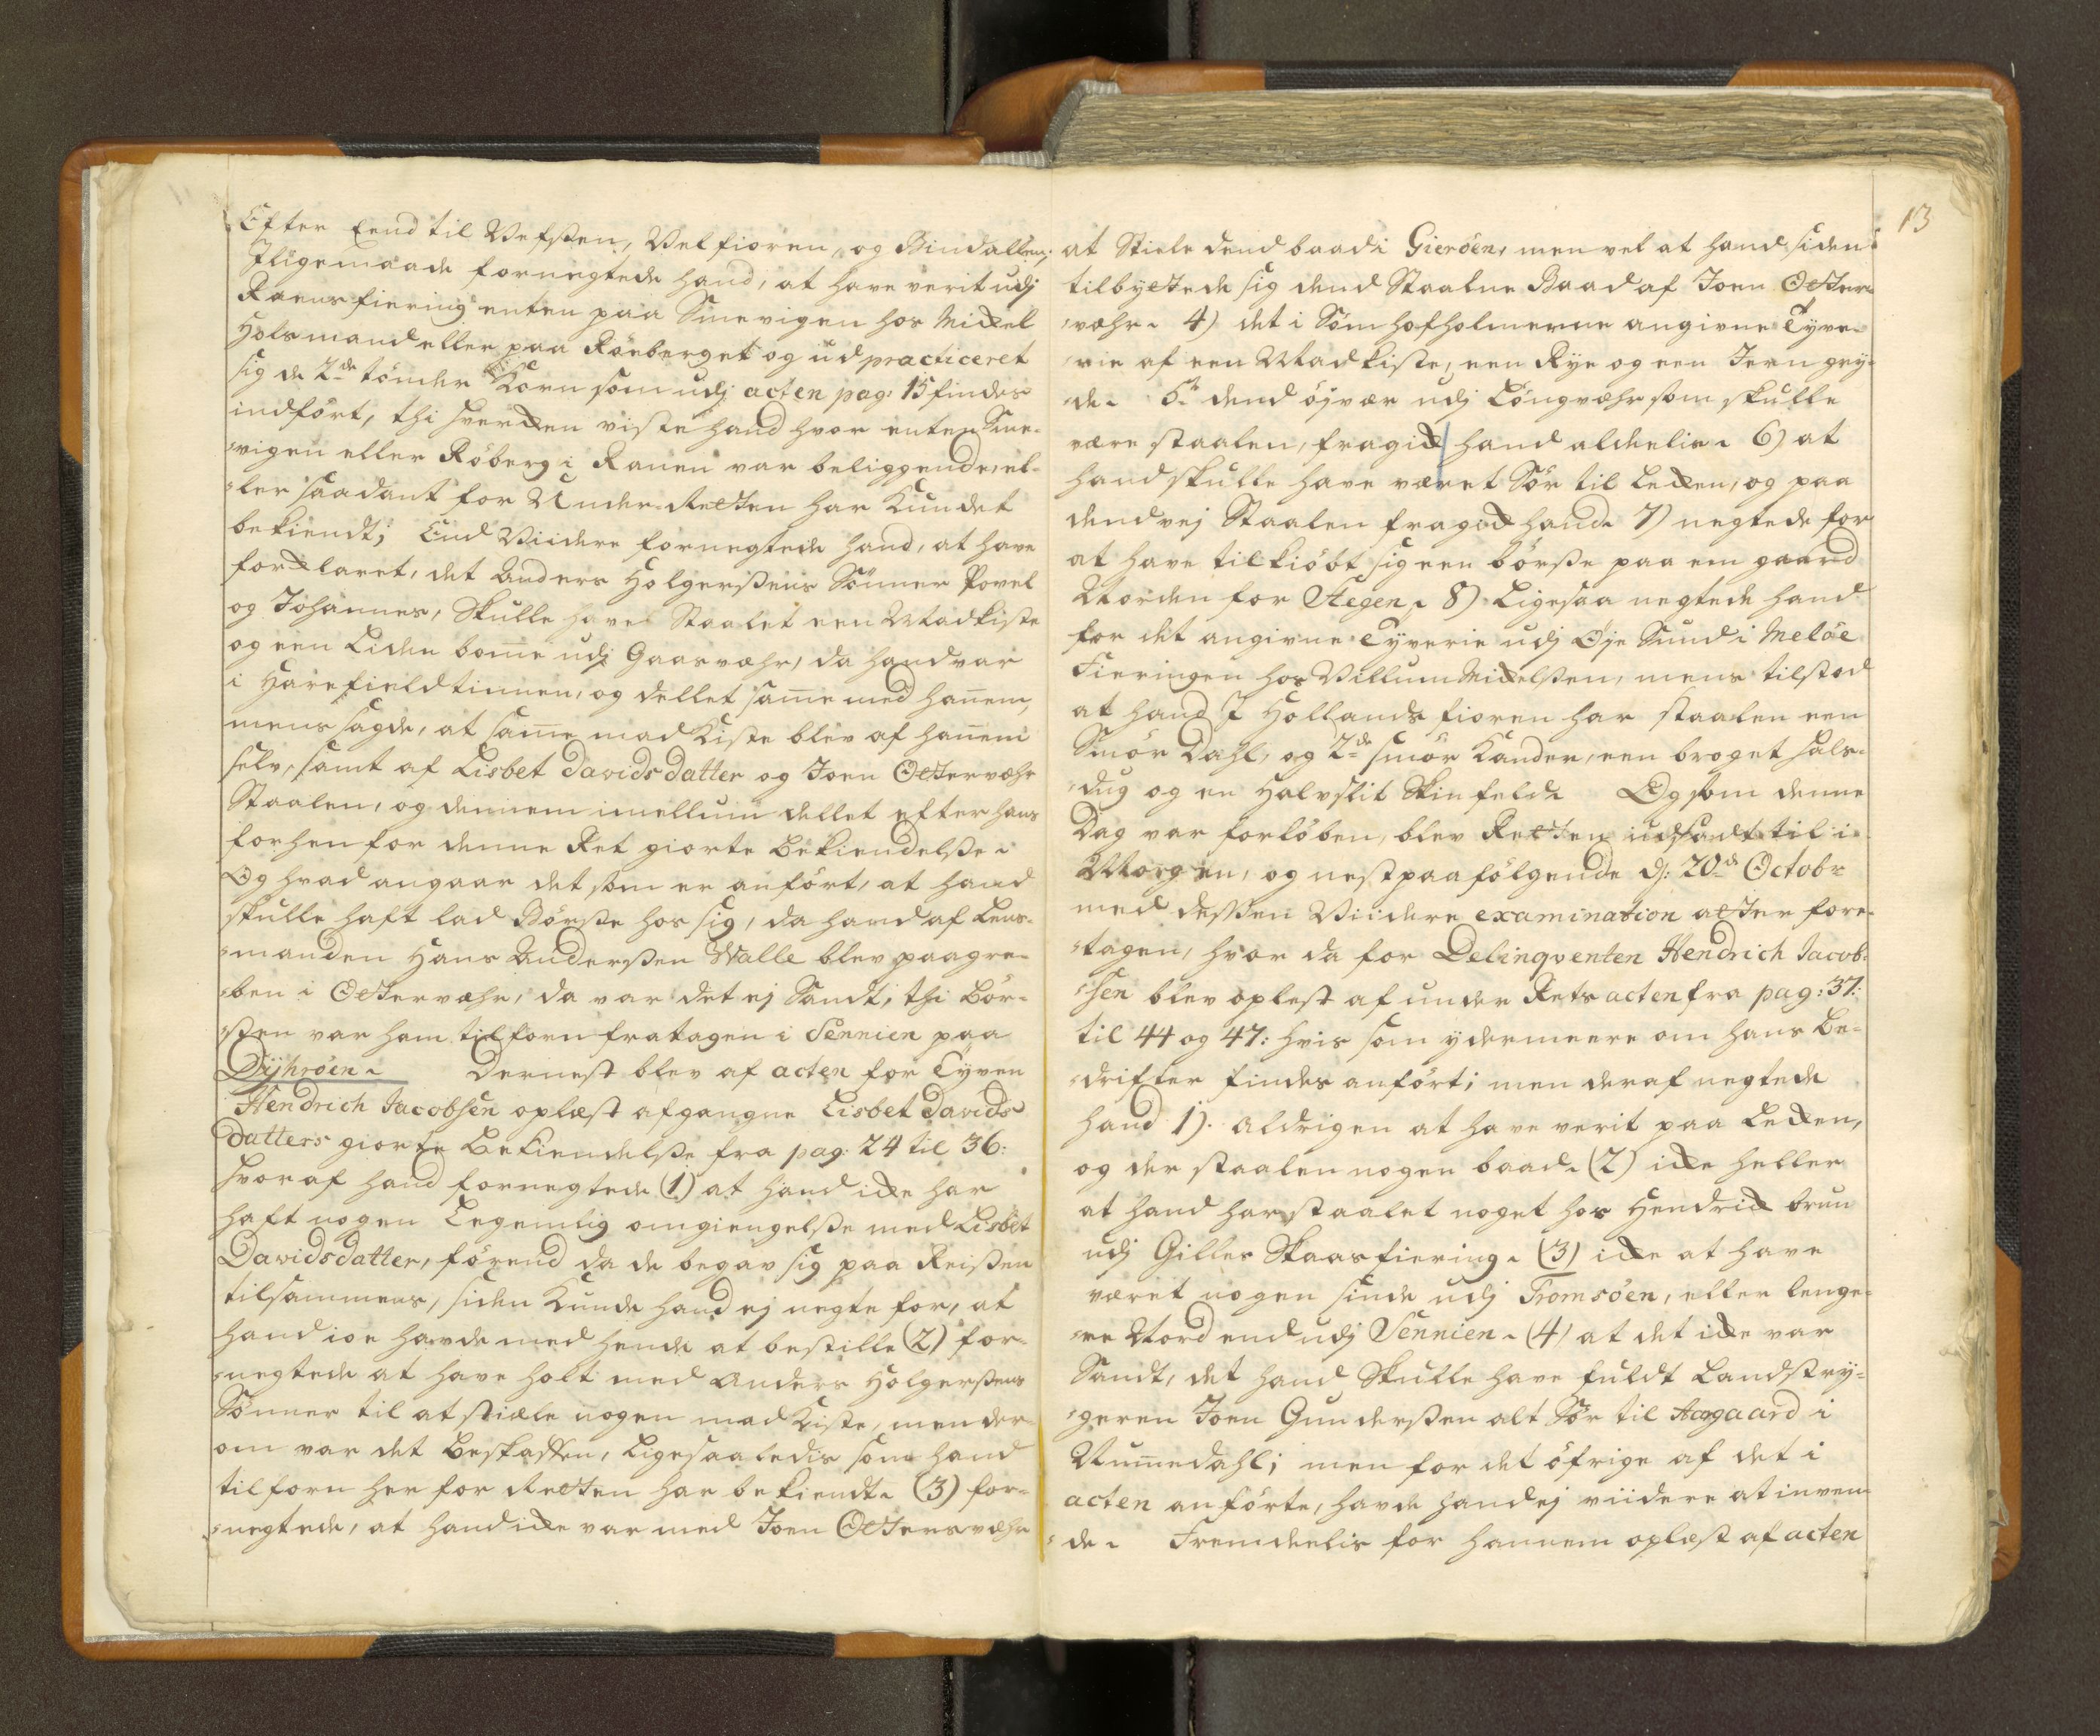 Efter Eend til Vefsten, Velfioren, og Bindallen,
Iligemaade fornegtede hand, at have verit udj
Ranens fiering enten paa Smevigen hos Michel
Holsmand eller paa Röeberget og udpracticeret
sig de 2de tönder Korn som udj acten pag: 15 findes
indfört, thi hverchen viste hand hvor enten Sme-
-vigen eller Röberg i Ranen var beliggende, el-
-ler saadant for Under-Retten har Kundet
bekiendt; End Viidere fornegtede hand, at have
forclaret, det Anders Holgerßens Sönner Povel
og Johannes, Skulle have Staalet een Madkiste
og een Liden bom̄e udj Gaasvæhr, da hand var
i Harefieldtinnen, og dellet sam̄e med han̄em,
mens sagde, at sam̄e mad Kiste blev af han̄em
selv, samt af Lisbet Davidsdatter og Joen Ottervæhr
Staalen, og dennem imellum dellet efter hans
forhen for denne Ret giorte Bekiendelße.
Og hvad angaar det som er anfört, at hand
skulle haft lad Börße hos sig, da hand af Lens-
-manden Hans Anderßen Walle blev paagre-
-ben i Ottervæhr, da var det ej Sandt, thi Bör-
-ßen var ham tilforn fratagen i Sennien paa
Dyhröen. Dernest blev af acten for Tyven
Hendrich Jacobsen oplæst afgangne Lisbet Davids
datters giorte Bekiendelße fra pag: 24 til 36:
hvoraf hand fornegtede (1) at hand icke har
haft nogen Legemlig omgiengelße med Lisbet
Davidsdatter, förend da de begav sig paa Reisen
tilsammens, siden Kunde hand ej negte for, at
hand ioe havde med hende at bestille (2) for-
-negtede at have holt med Anders Holgerßens
Sönner til at stiæle nogen mad Kiste, men der-
om var det beskaffen, ligesaaledis som hand
tilforn her for Retten har bekiendt. (3) for-
-negtede, at hand icke var med Joen Ottersvæhr
13
at Stiele dend baad i Gieröen, men vel at hand siden
tilbyttede sig dend Staalne Baad af Joen Otter-
-væhr. 4) det i Sömhofholmerne angivne Tyve-
-rie af een Madkiste, een Rye og een Jern gry-
-de. 5. dend öjvær udj Löngvæhr som skulle
være staalen, fragick hand aldeelis. 6) at
hand skulle have været Sör til Lecken, og paa
dend vej Staalen fragick hand. 7) negtede for
at have tilkiöbt sig een börße paa em gaard
Norden for Stegen. 8) Ligesaa negtede hand
for det angivne Tyverie udj Øje Sund i Melöe
Fieringen hos Villum Michelßen, mens tilstod
at hand I Hollands fioren har staalen een
Smör Dahl, og 2de smör Kander, een broget hals-
-dug og en Halvslit Skinfeld. Og som denne
Dag var forlöben, blev Retten udsadt til i
Morgen, og nest paafölgende d: 20de Octobr
med deßen Viidere examination atter fore-
-tagen, hvor da for Delinqventen Hendrich Jacob-
-sen blev oplest af under Rets acten fra pag: 37:
til 44 og 47: hvis som ydermeere om hans Be-
-drifter findes anfört; men deraf negtede
hand 1). Aldrigen at have verit paa Lecken,
og der staalen nogen baad. (2) icke heller
at hand har staalet noget hos Hendrich brun
udj Gilles Skaarfiering. (3) icke at have
været nogen sinde udj Tromsöen, eller lenge-
-re Nord end udj Sennien. (4) at det icke var
Sandt, det hand Skulle have fuldt Landstry-
-geren Joen Gunderßen alt Sör til Aargaard i
Num̄edahl; men for det öfrige af det i
acten anförte, havde hand ej viidere at inven-
-de. Fremdeelis for hannem oplæst af acten